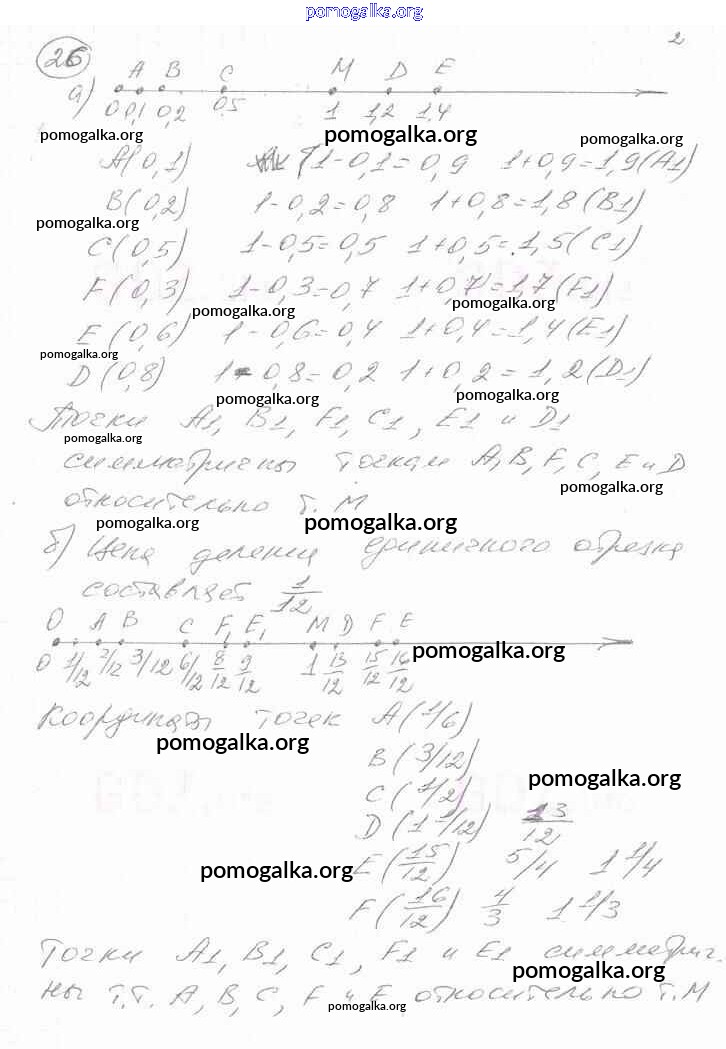 pomogalka.org
2
26
а) A B C M D E
0 0,1 0,2 0,5 1 1,2 1,4
pomogalka.org pomogalka.org pomogalka.org
A(0,1) 1-0,1=0,9 1+0,9=1,9(A1)
B(0,2) 1-0,2=0,8 1+0,8=1,8(B1)
pomogalka.org
C(0,5) 1-0,5=0,5 1+0,5=1,5(C1)
F(0,3) 1-0,3=0,7 1+0,7=1,7(F1)
pomogalka.org pomogalka.org
E(0,6) 1-0,6=0,4 1+0,4=1,4(E1)
pomogalka.org
D(0,8) 1-0,8=0,2 1+0,2=1,2(D1)
pomogalka.org pomogalka.org
Точки A1, B1, F1, C1, E1 и D1
pomogalka.org
симметричны точкам A, B, F, C, E и D
pomogalka.org
относительно т. M
pomogalka.org pomogalka.org
б) Цена деления единичного отрезка
составляет 1/12
O A B C F1 E1 M D F E
0 1/12 2/12 3/12 6/12 8/12 9/12 1 13/12 15/12 16/12
pomogalka.org
Координаты точек A(1/6)
pomogalka.org
B(3/12)
C(1/2)
pomogalka.org
D(1 1/12) 13/12
E(15/12) 5/4 1 1/4
pomogalka.org
F(16/12) 4/3 1 1/3
Точки A1, B1, C1, F1 и E1 симметрич.
pomogalka.org
ны т.т. A, B, C, F и E относительно т. M
pomogalka.org